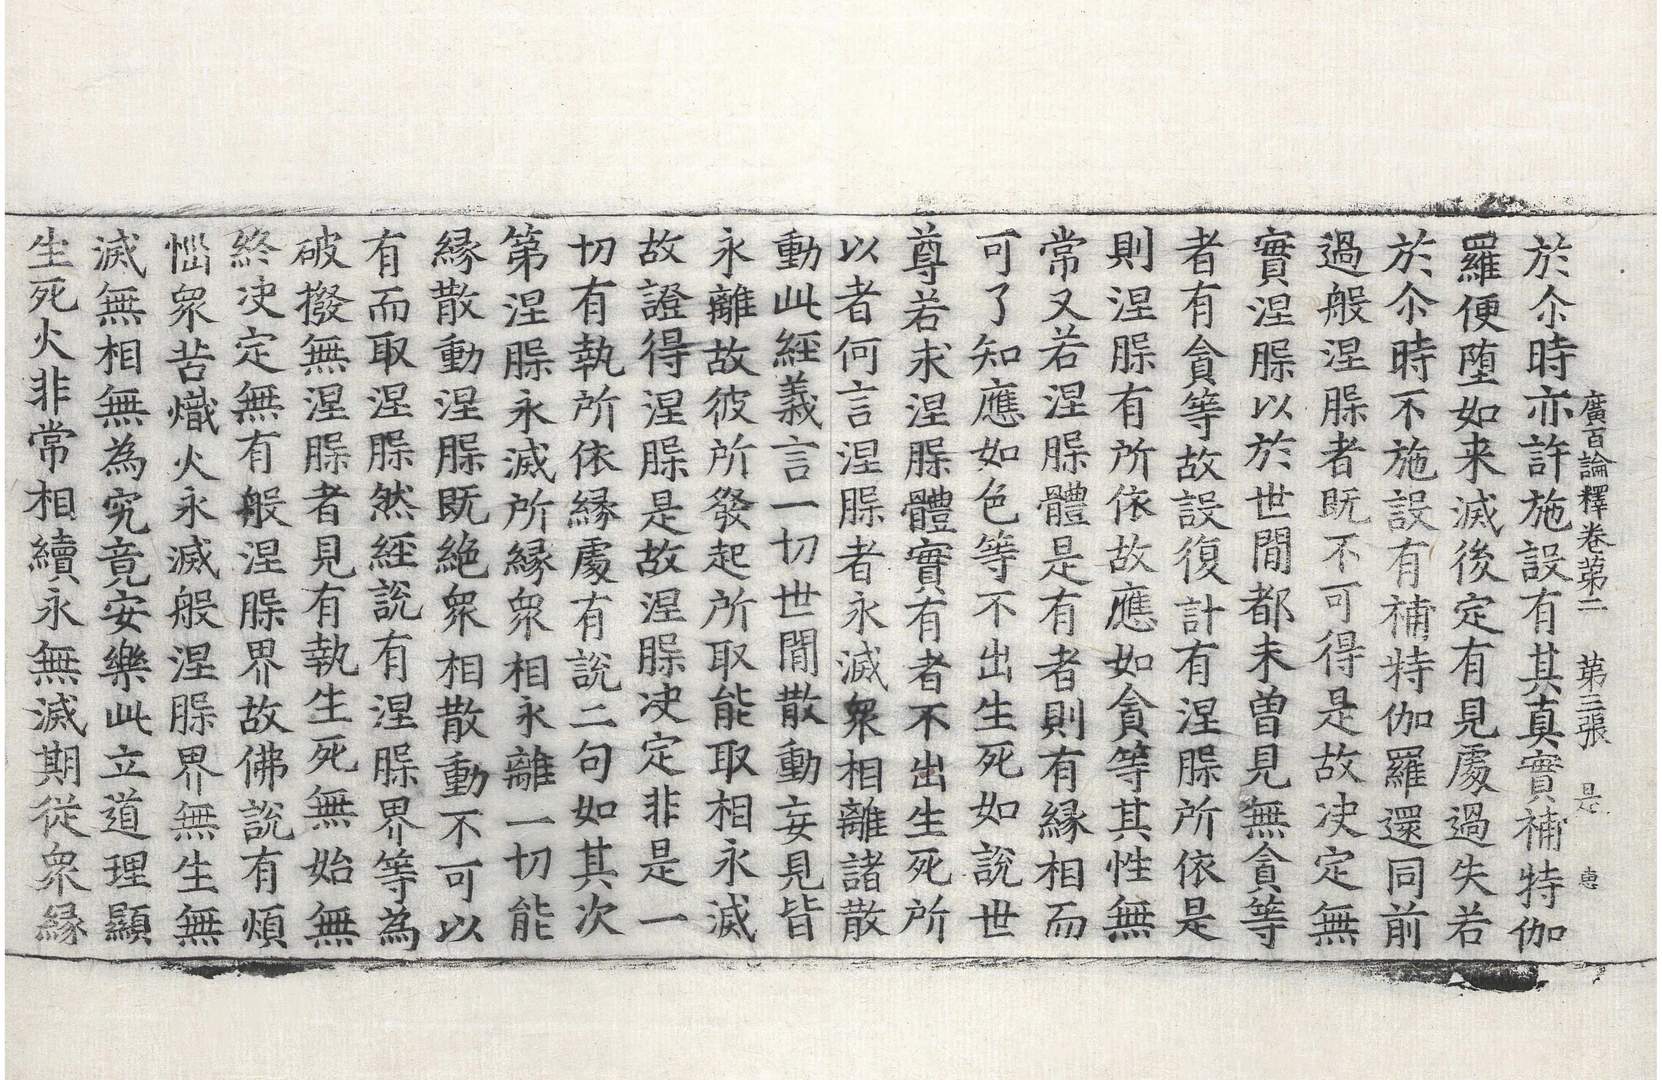 廣百論釋卷第二 第三張 是 惠
於尒時亦許施設有其真實補特伽
羅便堕如来滅後定有見處過失若
於尒時不施設有補特伽羅還同前
過般涅槃者既不可得是故决定無
實涅槃以於世間都未曾見無貪等
者有貪等故設復計有涅槃所依是
則涅槃有所依故應如貪等其性無
常又若涅槃體是有者則有縁相而
可了知應如色等不出生死如說世
尊若求涅槃體實有者不出生死所
以者何言涅槃者永滅衆相離諸散
動此經義言一切世間散動妄見皆
永離故彼所發起所取能取相永滅
故證得涅槃是故涅槃决定非是一
切有執所依縁處有說二句如其次
第涅槃永滅所縁衆相永離一切能
縁散動涅槃既絶衆相散動不可以
有而取涅槃然經說有涅槃界等為
破撥無涅槃者見有執生死無始無
終决定無有般涅槃界故佛說有煩
惱衆苦熾火永滅般涅槃界無生無
滅無相無為究竟安樂此立道理顯
生死火非常相續永無滅期從衆縁